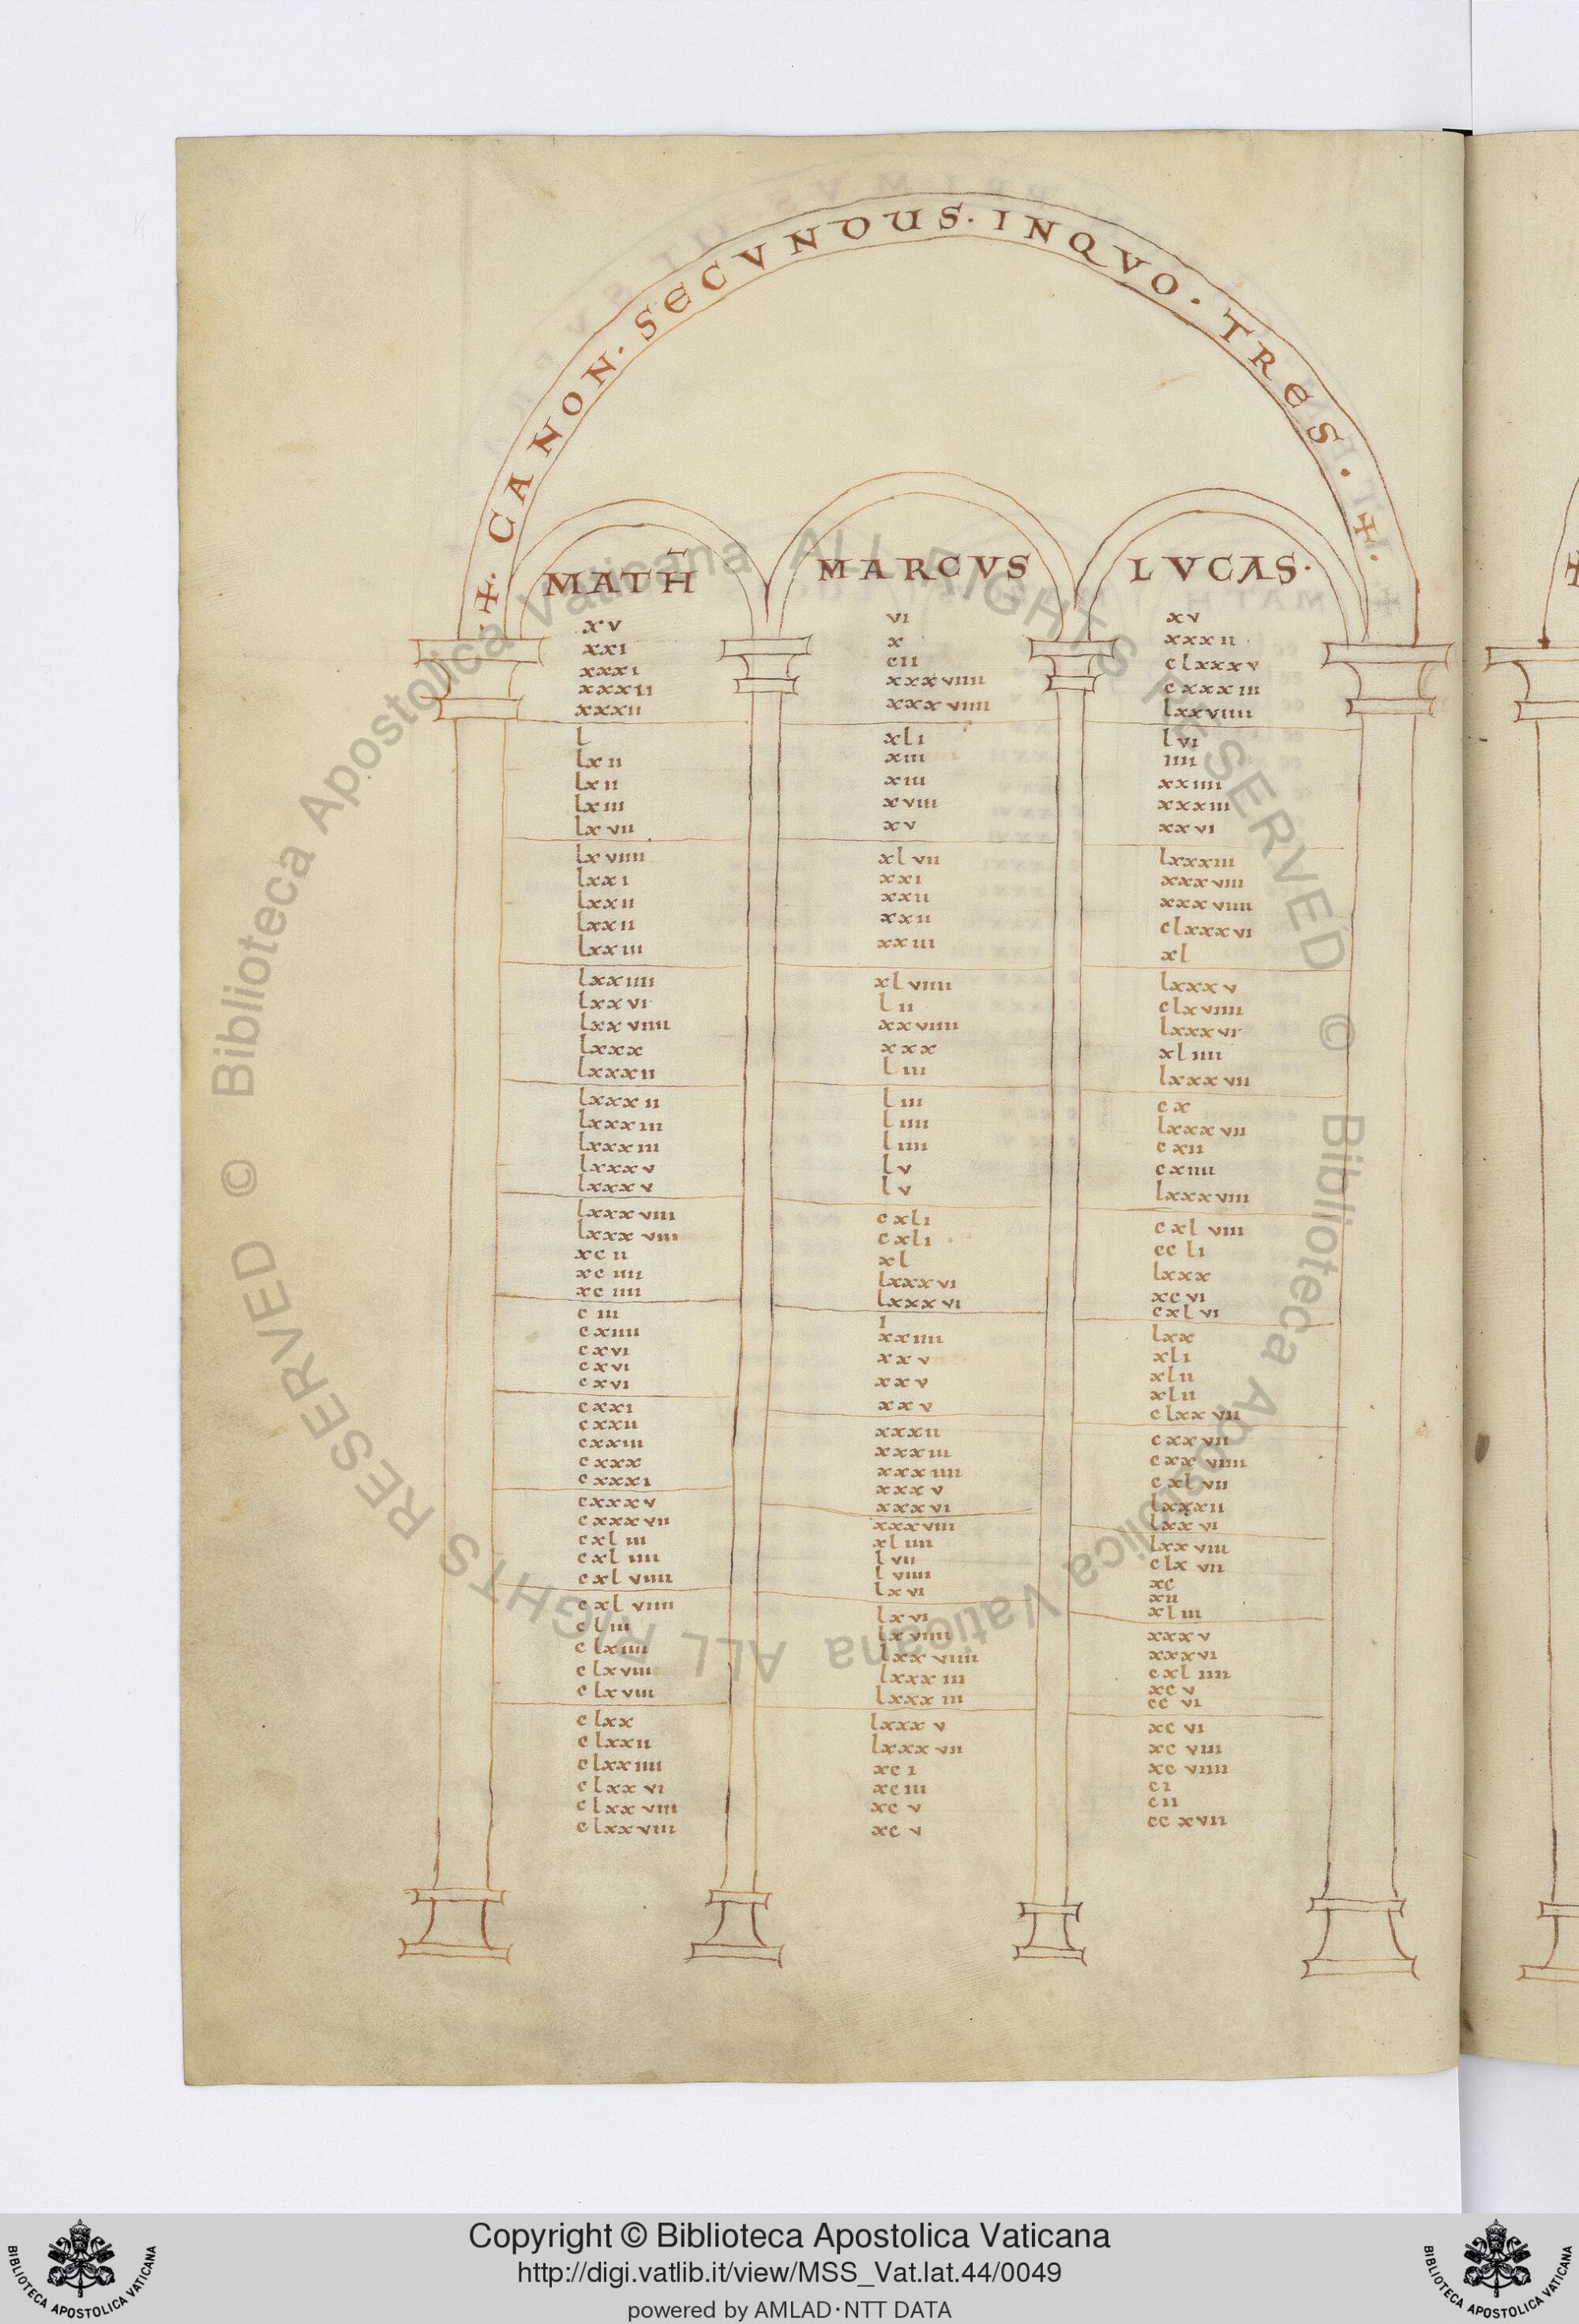 ·✠· CANON · SECVNDUS · INQVO · TRES · ✠ ·
MATH̄ MARCVS LVCAS·
xv vi xv
xxi x xxxii
xxxi cii clxxxv
xxxii xxxviiii cxxxiii
xxxii xxxviiii lxxviiii
l xli lvi
lxii xiii iiii
lxii xiii xxiiii
lxiii xviii xxxiii
lxvii xv xxvi
lxviiii xlvii lxxxiii
lxxi xxi xxxviii
lxxii xxii xxxviiii
lxxii xxii clxxxvi
lxxiii xxiii xl
lxxiiii xlviiii lxxxv
lxxvi lii clxviiii
lxxviiii xxviiii lxxxvi
lxxx xxx xliiii
lxxxii liii lxxxvii
lxxxii liii cx
lxxxiii liiii lxxxvii
lxxxiii liiii cxii
lxxxv lv cxiiii
lxxxv lv lxxxviii
lxxxviii cxli cxlviii
lxxxviii cxli ccli
xcii xl lxxx
xciiii lxxxvi xcvi
xciiii lxxxvi cxlvi
ciii i lxx
cxiiii xxiiii xli
cxvi xxv xlii
cxvi xxv xlii
cxvi xxv clxxvii
cxxi xxxii cxxvii
cxxii xxxiii cxxviiii
cxxiii xxxiiii cxlvii
cxxx xxxv lxxxii
cxxxi xxxvi lxxvi
cxxxv xxxviii lxxviii
cxxxvii xliiii clxvii
cxliii lvii xc
cxliiii lviiii xii
cxlviiii lxvi xliii
cxlviiii lxvi xxxv
cliii lxviiii xxxvi
clxiiii lxxviiii cxliiii
clxviii lxxxiii xcv
clxviii lxxxiii ccvi
clxx lxxxv xcvi
clxxii lxxxvii xcviii
clxxiiii xci xcviiii
clxxvi xciii ci
clxxviii xcv cii
clxxviii xcv ccxvii
© Biblioteca Apostolica Vaticana ALL RIGHTS RESERVED
© Biblioteca Apostolica Vaticana ALL RIGHTS RESERVED
Copyright © Biblioteca Apostolica Vaticana
http://digi.vatlib.it/view/MSS_Vat.lat.44/0049
powered by AMLAD·NTT DATA
BIBLIOTECA APOSTOLICA VATICANA
BIBLIOTECA APOSTOLICA VATICANA